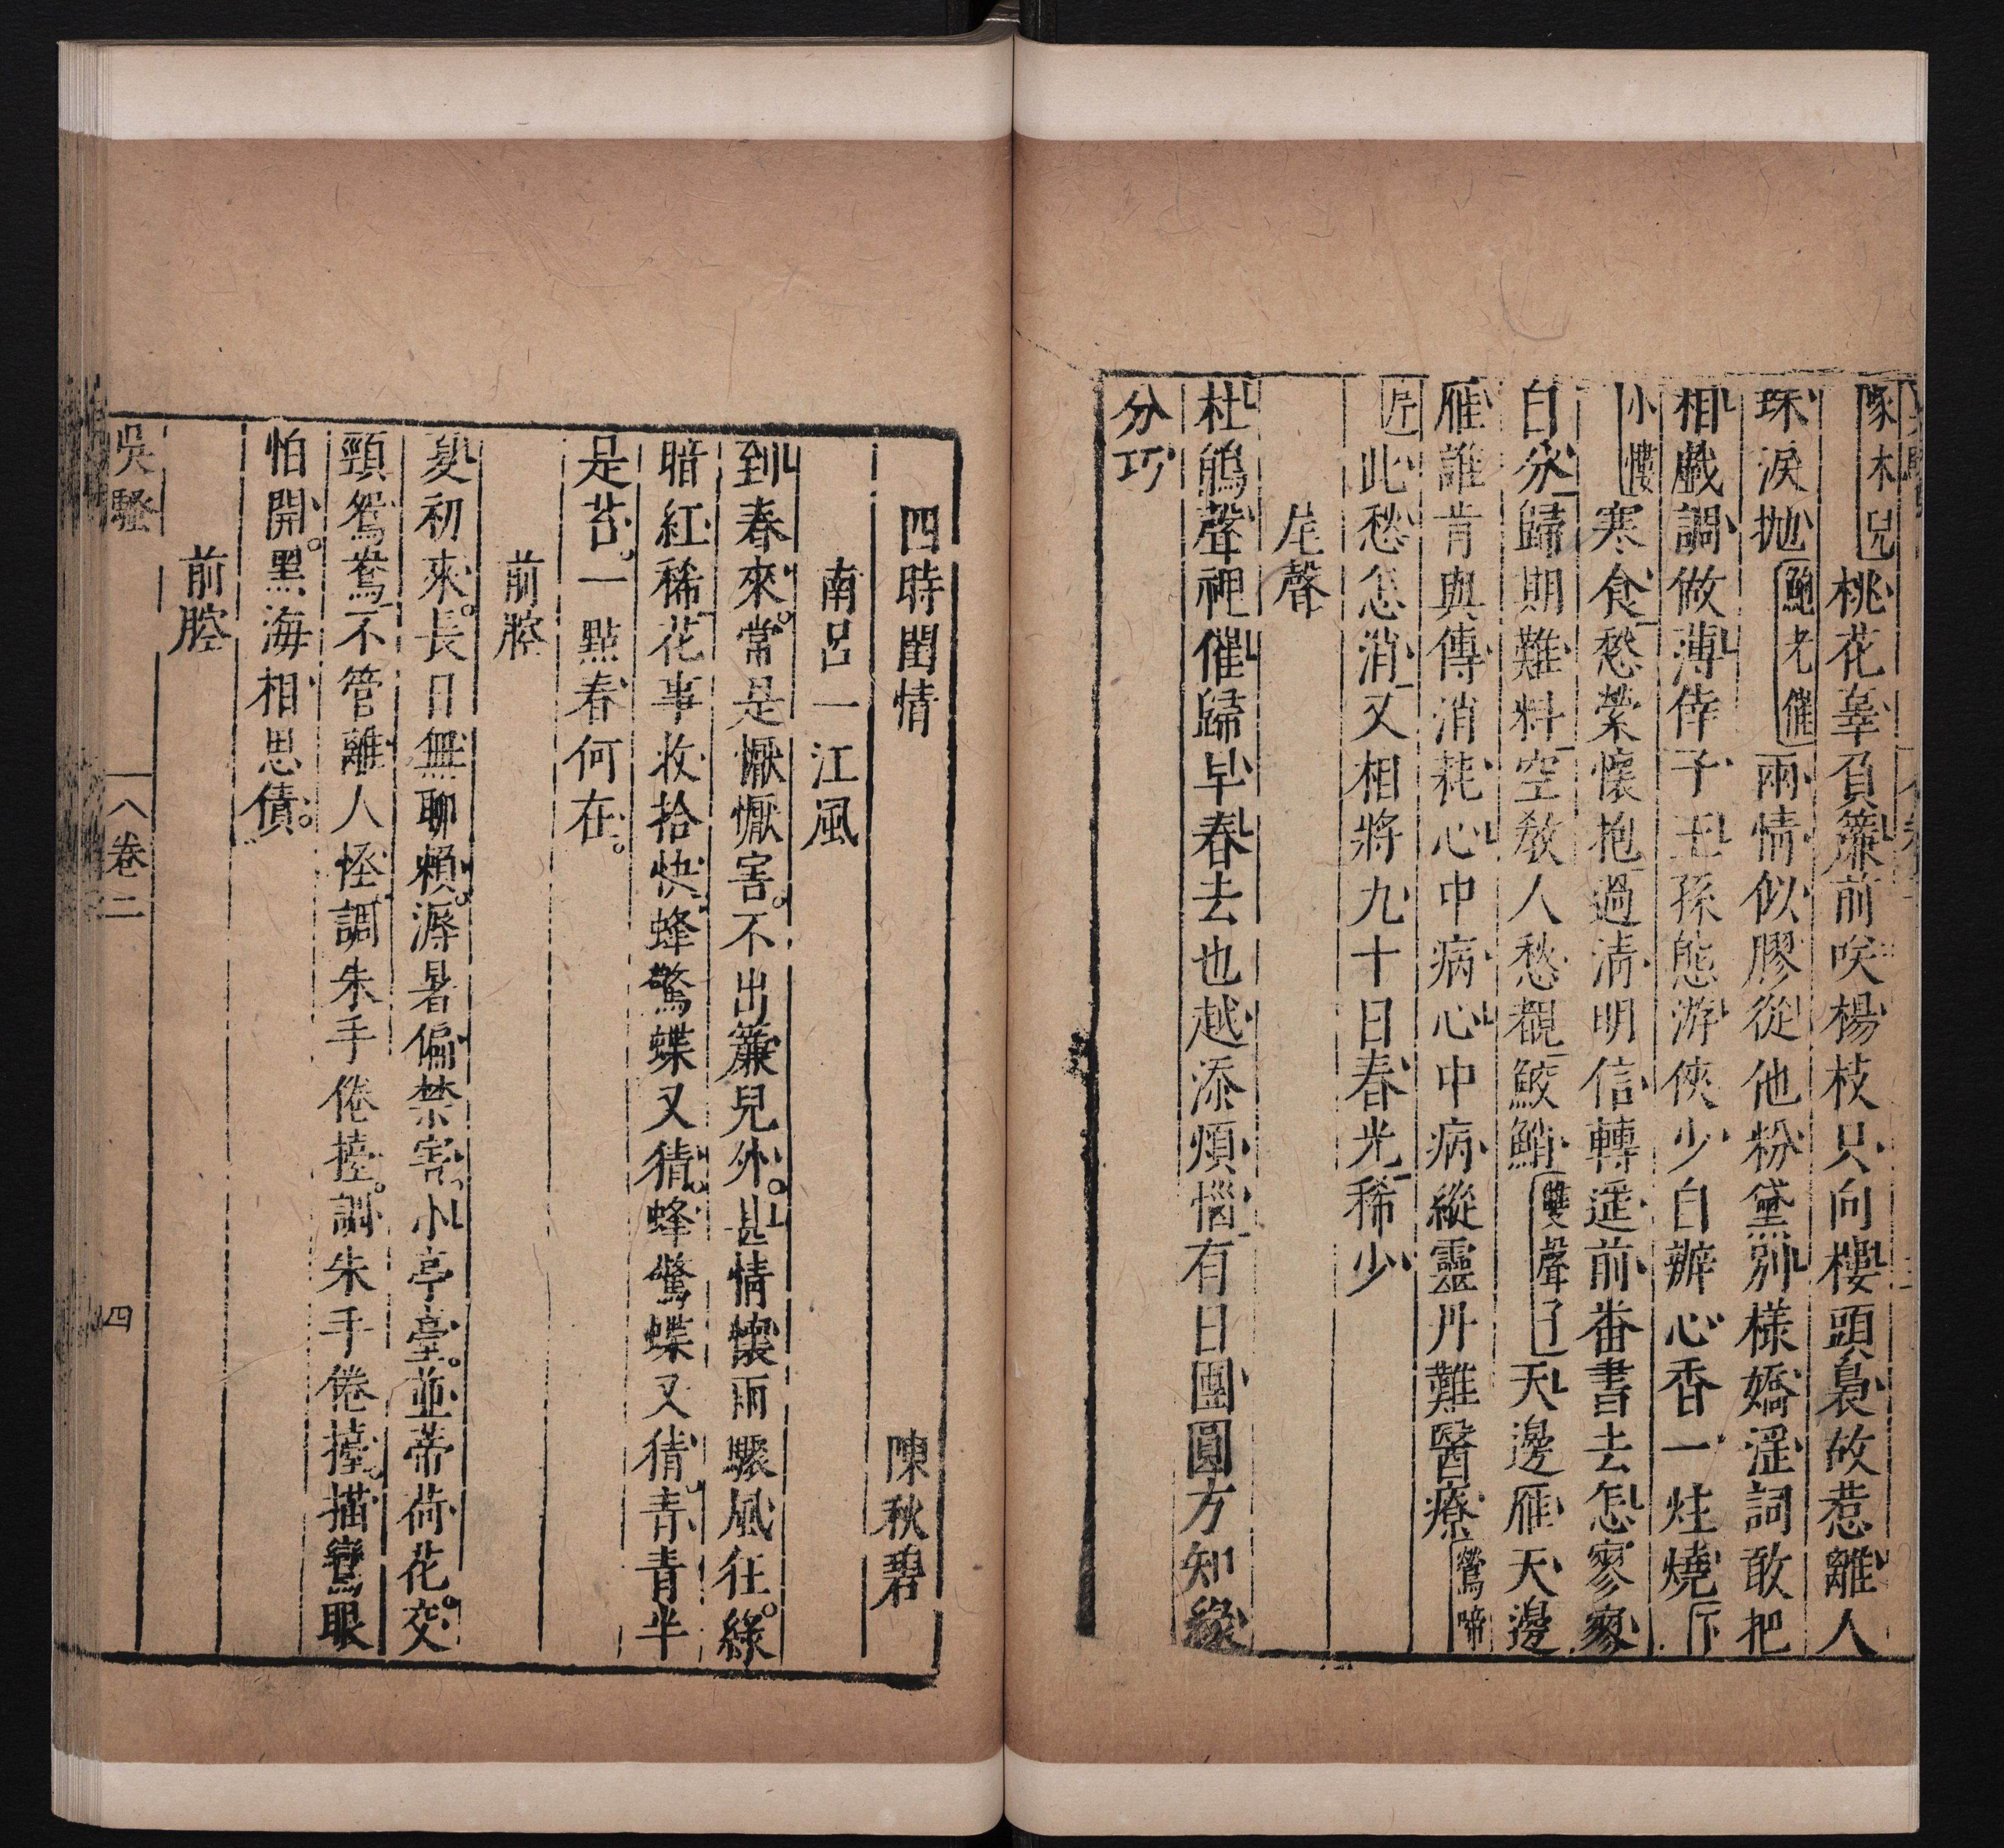 啄木兒桃花辜負簾前咲楊枝只向樓頭裊故惹離人
珠淚拋鮑老催兩情似膠從他粉黛別樣嬌淫詞敢把
相戲調做薄倖子王孫態游俠少自辦心香一炷燒下
小樓寒食愁縈懷抱過清明信轉遥前番書去怎寥寥
白分歸期難料空教人愁覩鮫鮹雙聲子天邊雁天邊
雁誰肯與傳消耗心中病心中病縱靈丹難醫療鶯啼
序此愁怎消又相將九十日春光稀少
尾聲
杜鵑聲裡催歸早春去也越添煩惱有日團圓方知緣
分巧
四時閨情　陳秋碧
南呂一江風
到春來常是懨懨害不出簾兒外甚情懷雨驟風狂綠
暗紅稀花事收拾快蜂驚蝶又猜蜂驚蝶又猜青青半
是苔一點春何在
前腔
夏初來長日無聊賴溽暑偏禁害小亭臺並蒂荷花交
頸鴛鴦不管離人怪調朱手倦擡調朱手倦擡描鸞眼
怕開黑海相思債
前腔
吳騷　卷二　四